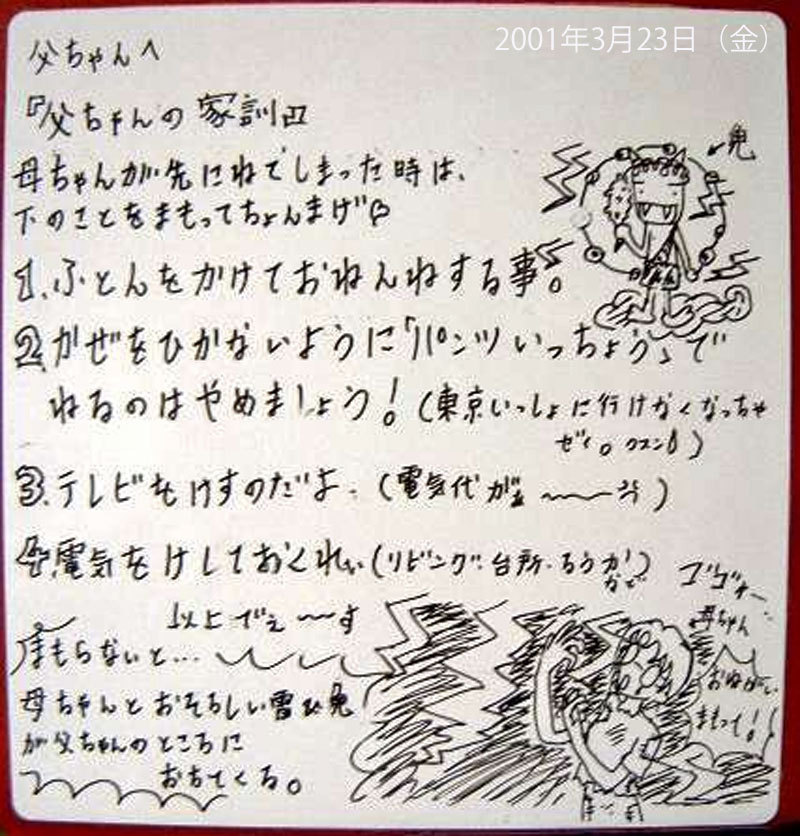 2001年3月23日（金）
父ちゃんへ
『父ちゃんの家訓』
母ちゃんが先にねてしまった時は、
下のことをまもってちょんまげ♡
←鬼
1.ふとんをかけておねんねする事。
2.かぜをひかないように「パンツいっちょう」で
ねるのはやめましょう！（東京いっしょに行けなくなっちゃ
ぜィ。クスン）
3.テレビをけすのだよ.（電気代がぁ〜〜）
4.電気をけしておくれぃ（リビング.台所.ろうか
など）
以上でぇ〜〜す
まもらないと…
母ちゃんとおそろしい雷な鬼
が父ちゃんのところに
おちてくる。
ゴゴォー…
母ちゃん
おねがい
まもって！